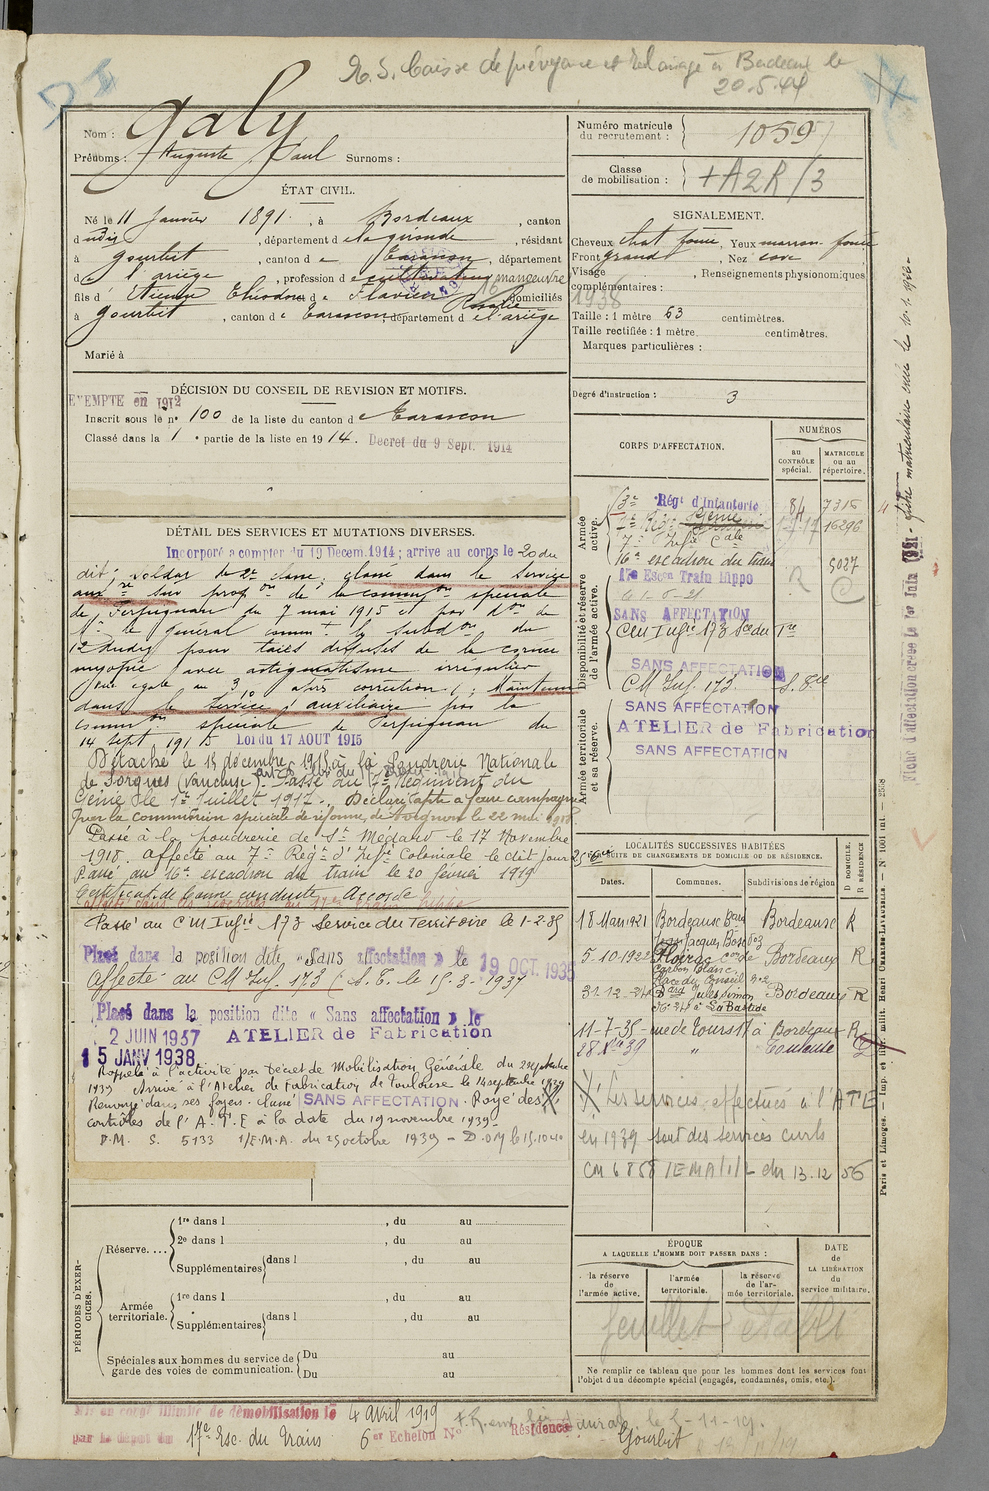 R. S. Caisse de prévoyance et Bordeaux le
20.5.44
Nom : Galy
Prénoms : Auguste Paul Surnoms :
ÉTAT CIVIL.
Né le 11 Janvier 1891, à Bordeaux, canton
dudit, département de la gironde, résidant
à Gourbit, canton de Tarascon, département
de l'ariège, profession de cultivateur manœuvre
fils d'Etienne Eliodore et de Flavien Rosalie domiciliés
à Gourbit, canton de Tarascon, département de l'ariège
Marié à
DÉCISION DU CONSEIL DE REVISION ET MOTIFS.
EXEMPTÉ en 1912
Inscrit sous le n° 100 de la liste du canton de Tarascon
Classé dans la 1e partie de la liste en 1914. Decret du 9 Sept. 1914
DÉTAIL DES SERVICES ET MUTATIONS DIVERSES.
Incorporé à compter du 19 Decem. 1914 ; arrivé au corps le 20 du
dit ; soldat de 2e classe, classé dans le service
auxre sur propon de la common spéciale
de Perpignan du 7 mai 1915 et par don de
Mr le général commt la subdon du
12 dudit pour taies diffuses de la cornée
myopie avec astigmatisme irrégulier
égale au 3/10 après correction. Maintenu
dans le service auxiliaire par la
common spéciale de Perpignan du
14 sept 1915 Loi du 17 AOUT 1915
Détaché le 15 décembre 1915 à la Poudrerie Nationale
de Sorgues (Vaucluse). Passé au 7e Régiment du
Génie le 1er Juillet 1917. Déclaré apte à faire campagne
par la commission spéciale de réforme d'Avignon le 22 mai 1918.
Passé à la poudrerie de St Médard le 17 Novembre
1918. Affecté au 7e Régt d'Infie Coloniale le dit jour
Passé au 16e escadron du train le 20 février 1919
Certificat de bonne conduite Accordé
Passé au CM Infie 173 Service du Territoire le 1-2-35
Placé dans la position dite « Sans affectation » le 19 OCT. 1935
Affecté au CM Inf. 173 (S.T. le 15-3-1937
Placé dans la position dite « Sans affectation » le
2 JUIN 1937 ATELIER de Fabrication
15 JANV 1938
Rappelé à l'activité par Décret de Mobilisation Générale du 2 septembre
1939 Arrivé à l'Atelier de Fabrication de Toulouse le 14 septembre 1939
Renvoyé dans ses foyers. Classé SANS AFFECTATION. Rayé des
contrôles de l'A.T.E à la date du 19 novembre 1939
D.M. S. 5133 1/E.M.A. du 25 octobre 1939
PÉRIODES D'EXERCICES.
Réserve....
1re dans l , du au
2e dans l , du au
Supplémentaires dans l , du au
Armée territoriale.
1re dans l , du au
Supplémentaires dans l , du au
Spéciales aux hommes du service de garde des voies de communication.
Du au
Du au
Mis en congé illimité de démobilisation le 4 Avril 1919
par le dépôt du 17e Esc. du Train 6e Echelon N° Résidence
Gourbit
Numéro matricule
du recrutement : 1059
Classe
de mobilisation : +A2R/3
SIGNALEMENT.
Cheveux chat foncé, Yeux marron foncé
Front grand, Nez cave
Visage , Renseignements physionomiques
complémentaires :
1938
Taille : 1 mètre 63 centimètres.
Taille rectifiée : 1 mètre centimètres.
Marques particulières :
Degré d'instruction : 3
CORPS D'AFFECTATION.
NUMÉROS
AU CONTRÔLE spécial.
MATRICULE ou au répertoire.
Armée active.
Régt d'Infanterie 84 7316
16296
7e Infie Cale
16e escadron du train 5027
Disponibilité et réserve de l'armée active.
17e Escon Train hippo
SANS AFFECTATION
CM Infie 173 Sce du Tre
SANS AFFECTATION
CM Inf. 173.
Armée territoriale et sa réserve.
SANS AFFECTATION
ATELIER de Fabrication
SANS AFFECTATION
LOCALITÉS SUCCESSIVES HABITÉES
PAR SUITE DE CHANGEMENTS DE DOMICILE OU DE RÉSIDENCE.
Dates. Communes. Subdivisions de région D DOMICILE. R RÉSIDENCE
18 Mars 1921 Bordeaux Bordeaux R
5-10-1922 Floirac Bordeaux R
Carbon Blanc
31-12-24 Bard Jules Simon Bordeaux R
La Bastide
11-7-35 rue de Tours 17 à Bordeaux R
28 39 " Toulouse
Les services effectués à l'ATE
en 1939 sont des services civils
CM 6858 /EMA/1/L du 13.12.56
ÉPOQUE
A LAQUELLE L'HOMME DOIT PASSER DANS :
la réserve de l'armée active.
l'armée territoriale.
la réserve de l'armée territoriale.
DATE de LA LIBÉRATION du service militaire.
feuillet établi
Ne remplir ce tableau que pour les hommes dont les services font
l'objet d'un décompte spécial (engagés, condamnés, omis, etc.).
Fiche d'affectation créée le 1er Juin 1921
Paris et Limoges. — Imp. et libr. milit. Henri CHARLES-LAVAUZELLE.